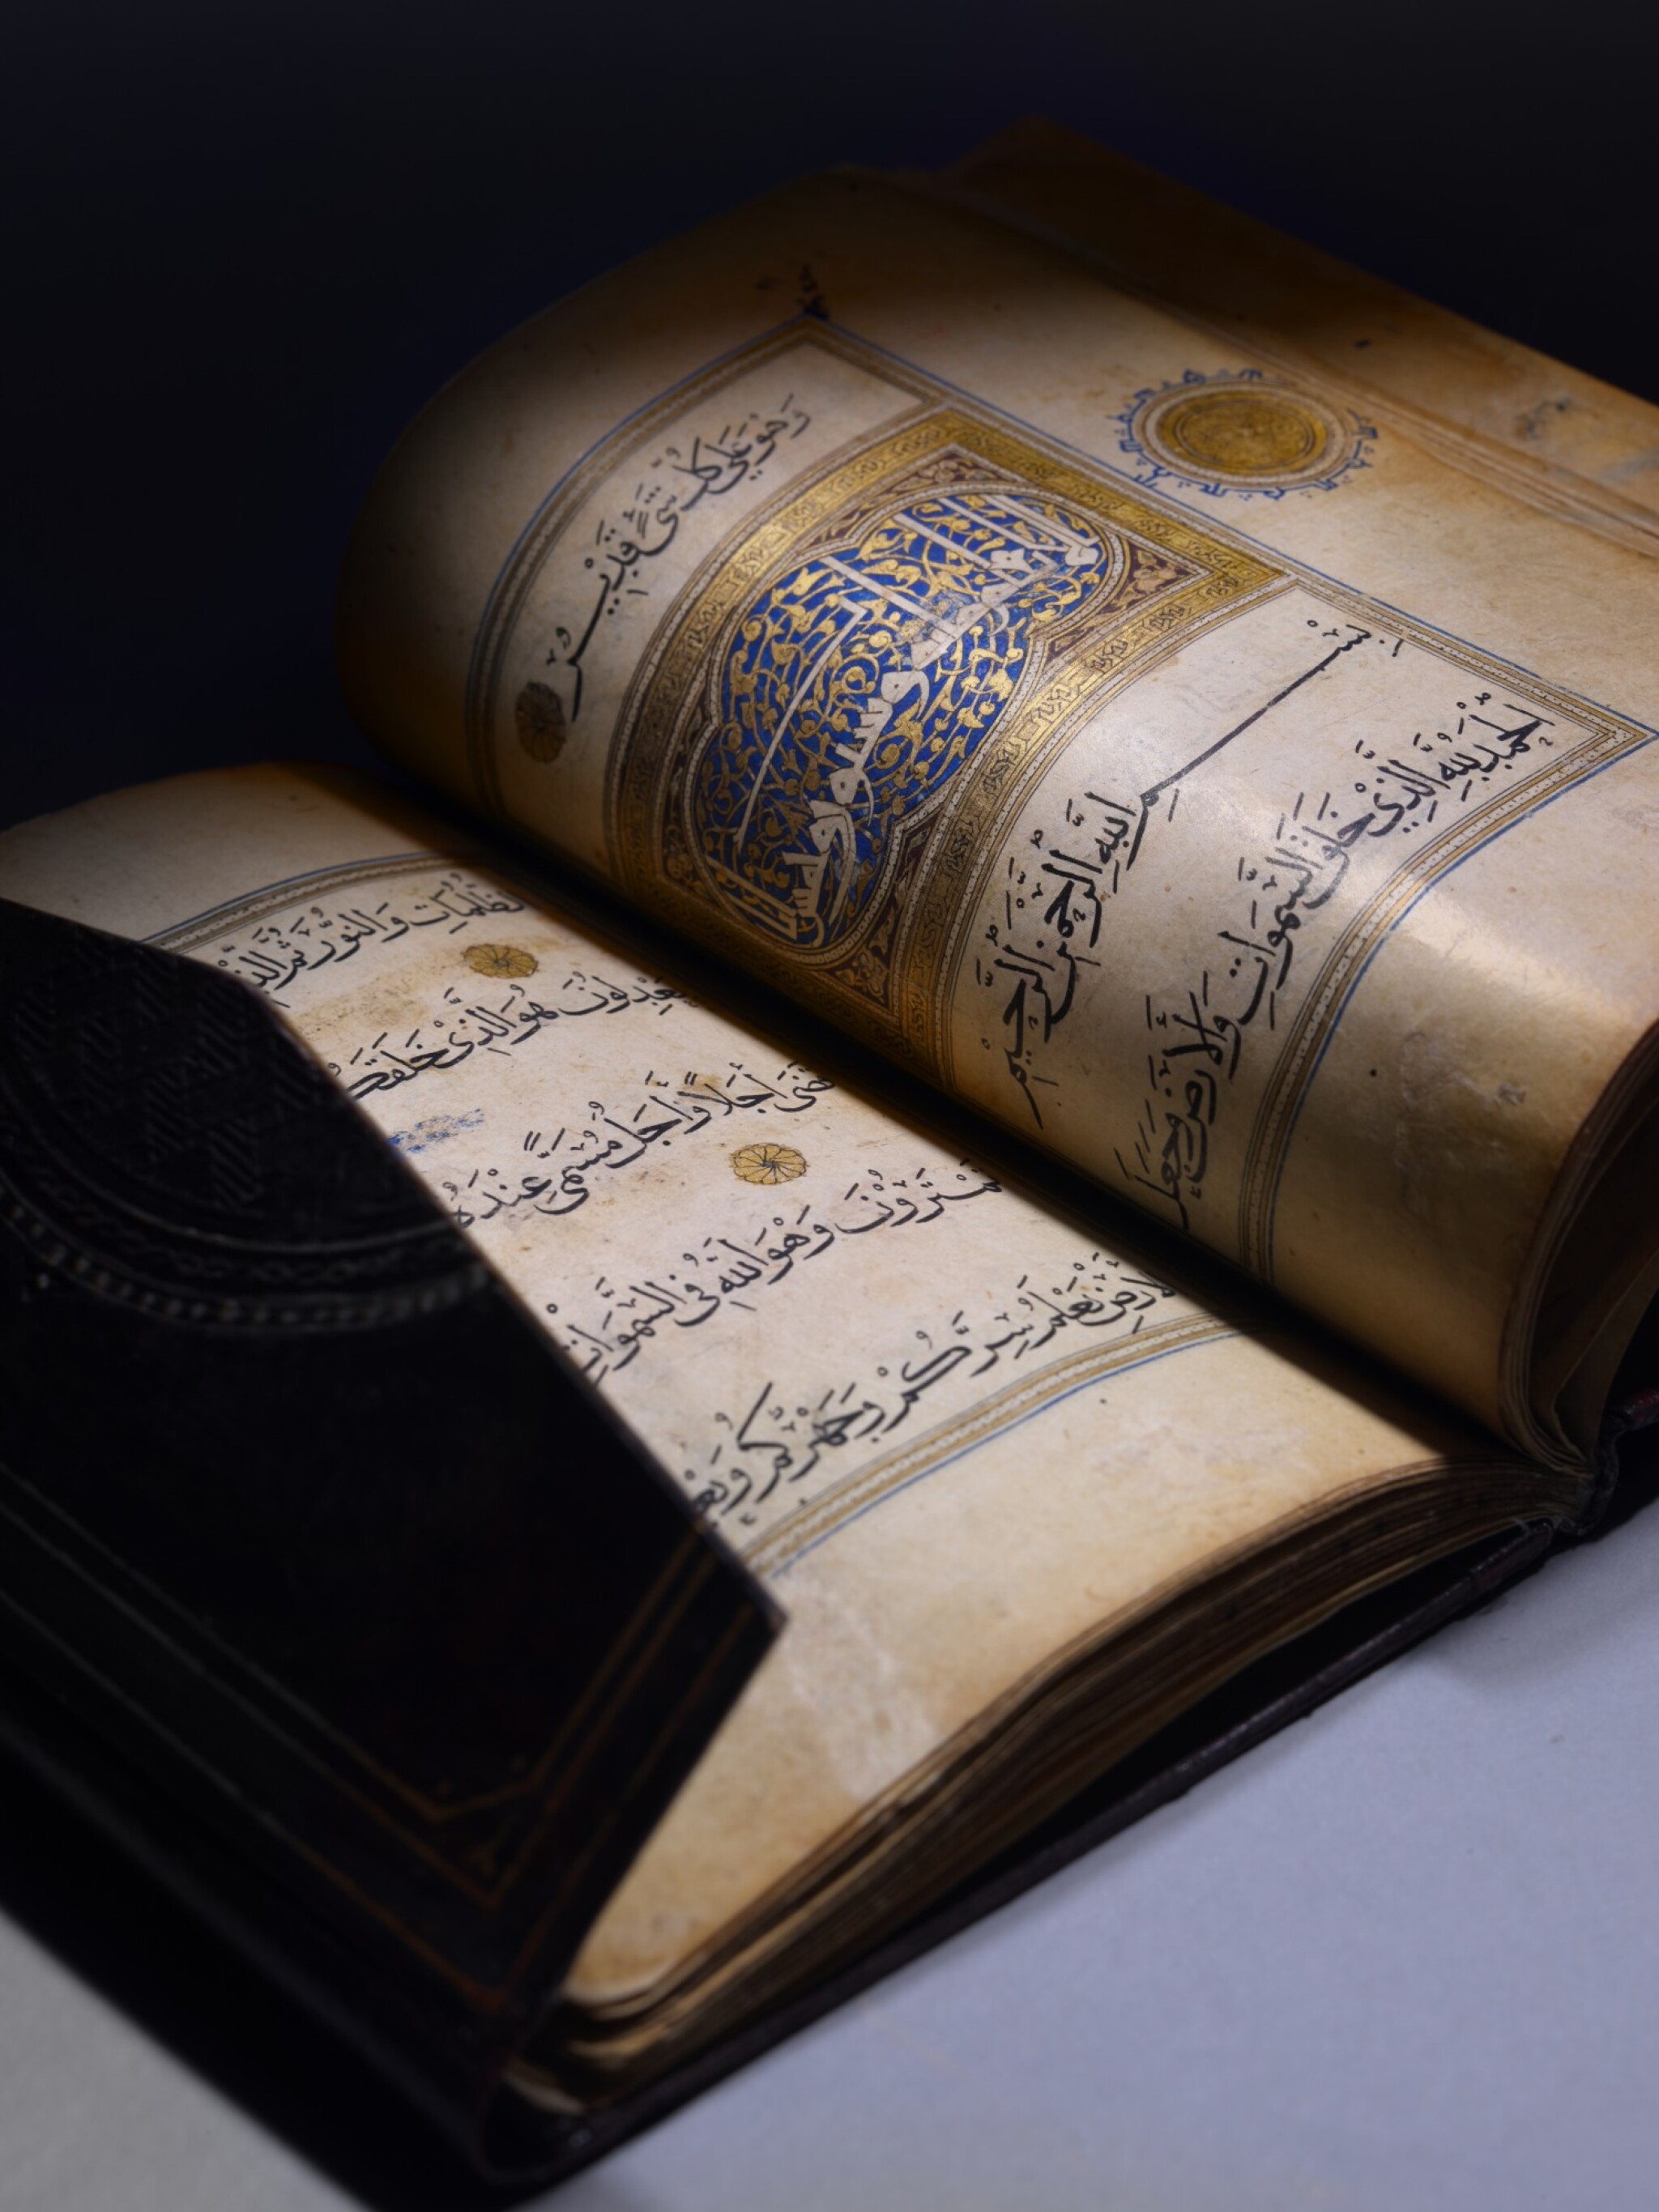 وَهُوَ عَلَى كُلِّ شَىْءٍ قَدِيْرٌ
بِسْمِ اللَّهِ الرَّحْمَنِ الرَّحِيْمِ
الْحَمْدُ لِلَّهِ الَّذِىْ خَلَقَ السَّمَوَاتِ وَالْأَرْضَ وَجَعَلَ
الظُّلُمَاتِ وَالنُّوْرَ ثُمَّ الَّذِيْنَ
يَعْدِلُوْنَ هُوَ الَّذِىْ خَلَقَكُ
قَضَى أَجَلًا وَأَجَلٌ مُسَمًّى عِنْدَهُ
تَمْتَرُوْنَ وَهُوَ اللَّهُ فِى السَّمَوَاتِ
الْأَرْضِ يَعْلَمُ سِرَّكُمْ وَجَهْرَكُمْ وَيَعْ